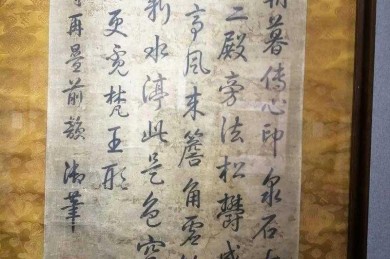 朝暮傳心印泉石
二殿旁法松欝
亭風来簷角雲
新水渟此是色空
更覓梵王形
再疊前韻 御筆